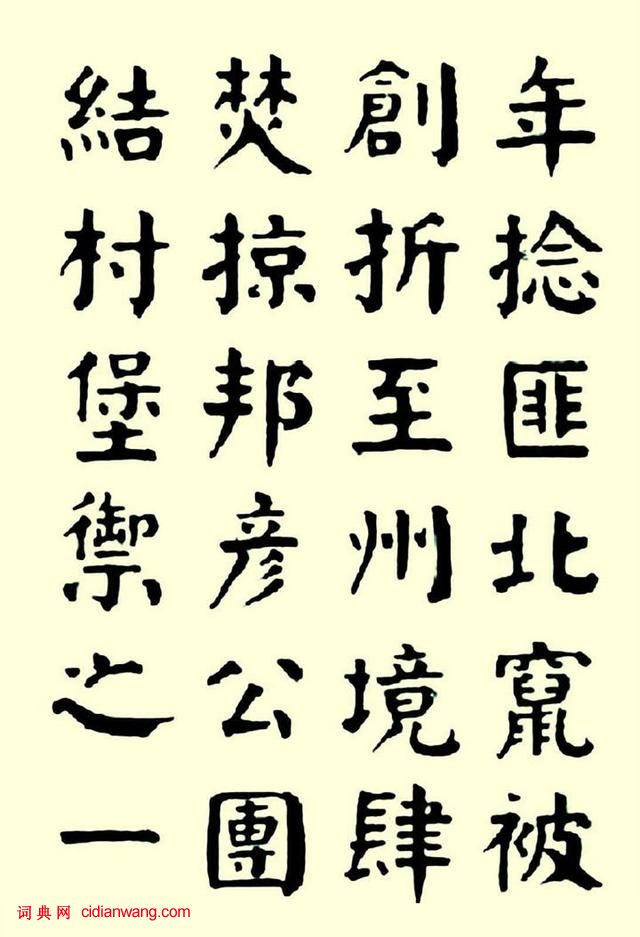 年捻匪北竄被
創折至州境肆
焚掠邦彦公團
結村堡禦之一
词典网 cidianwang.com